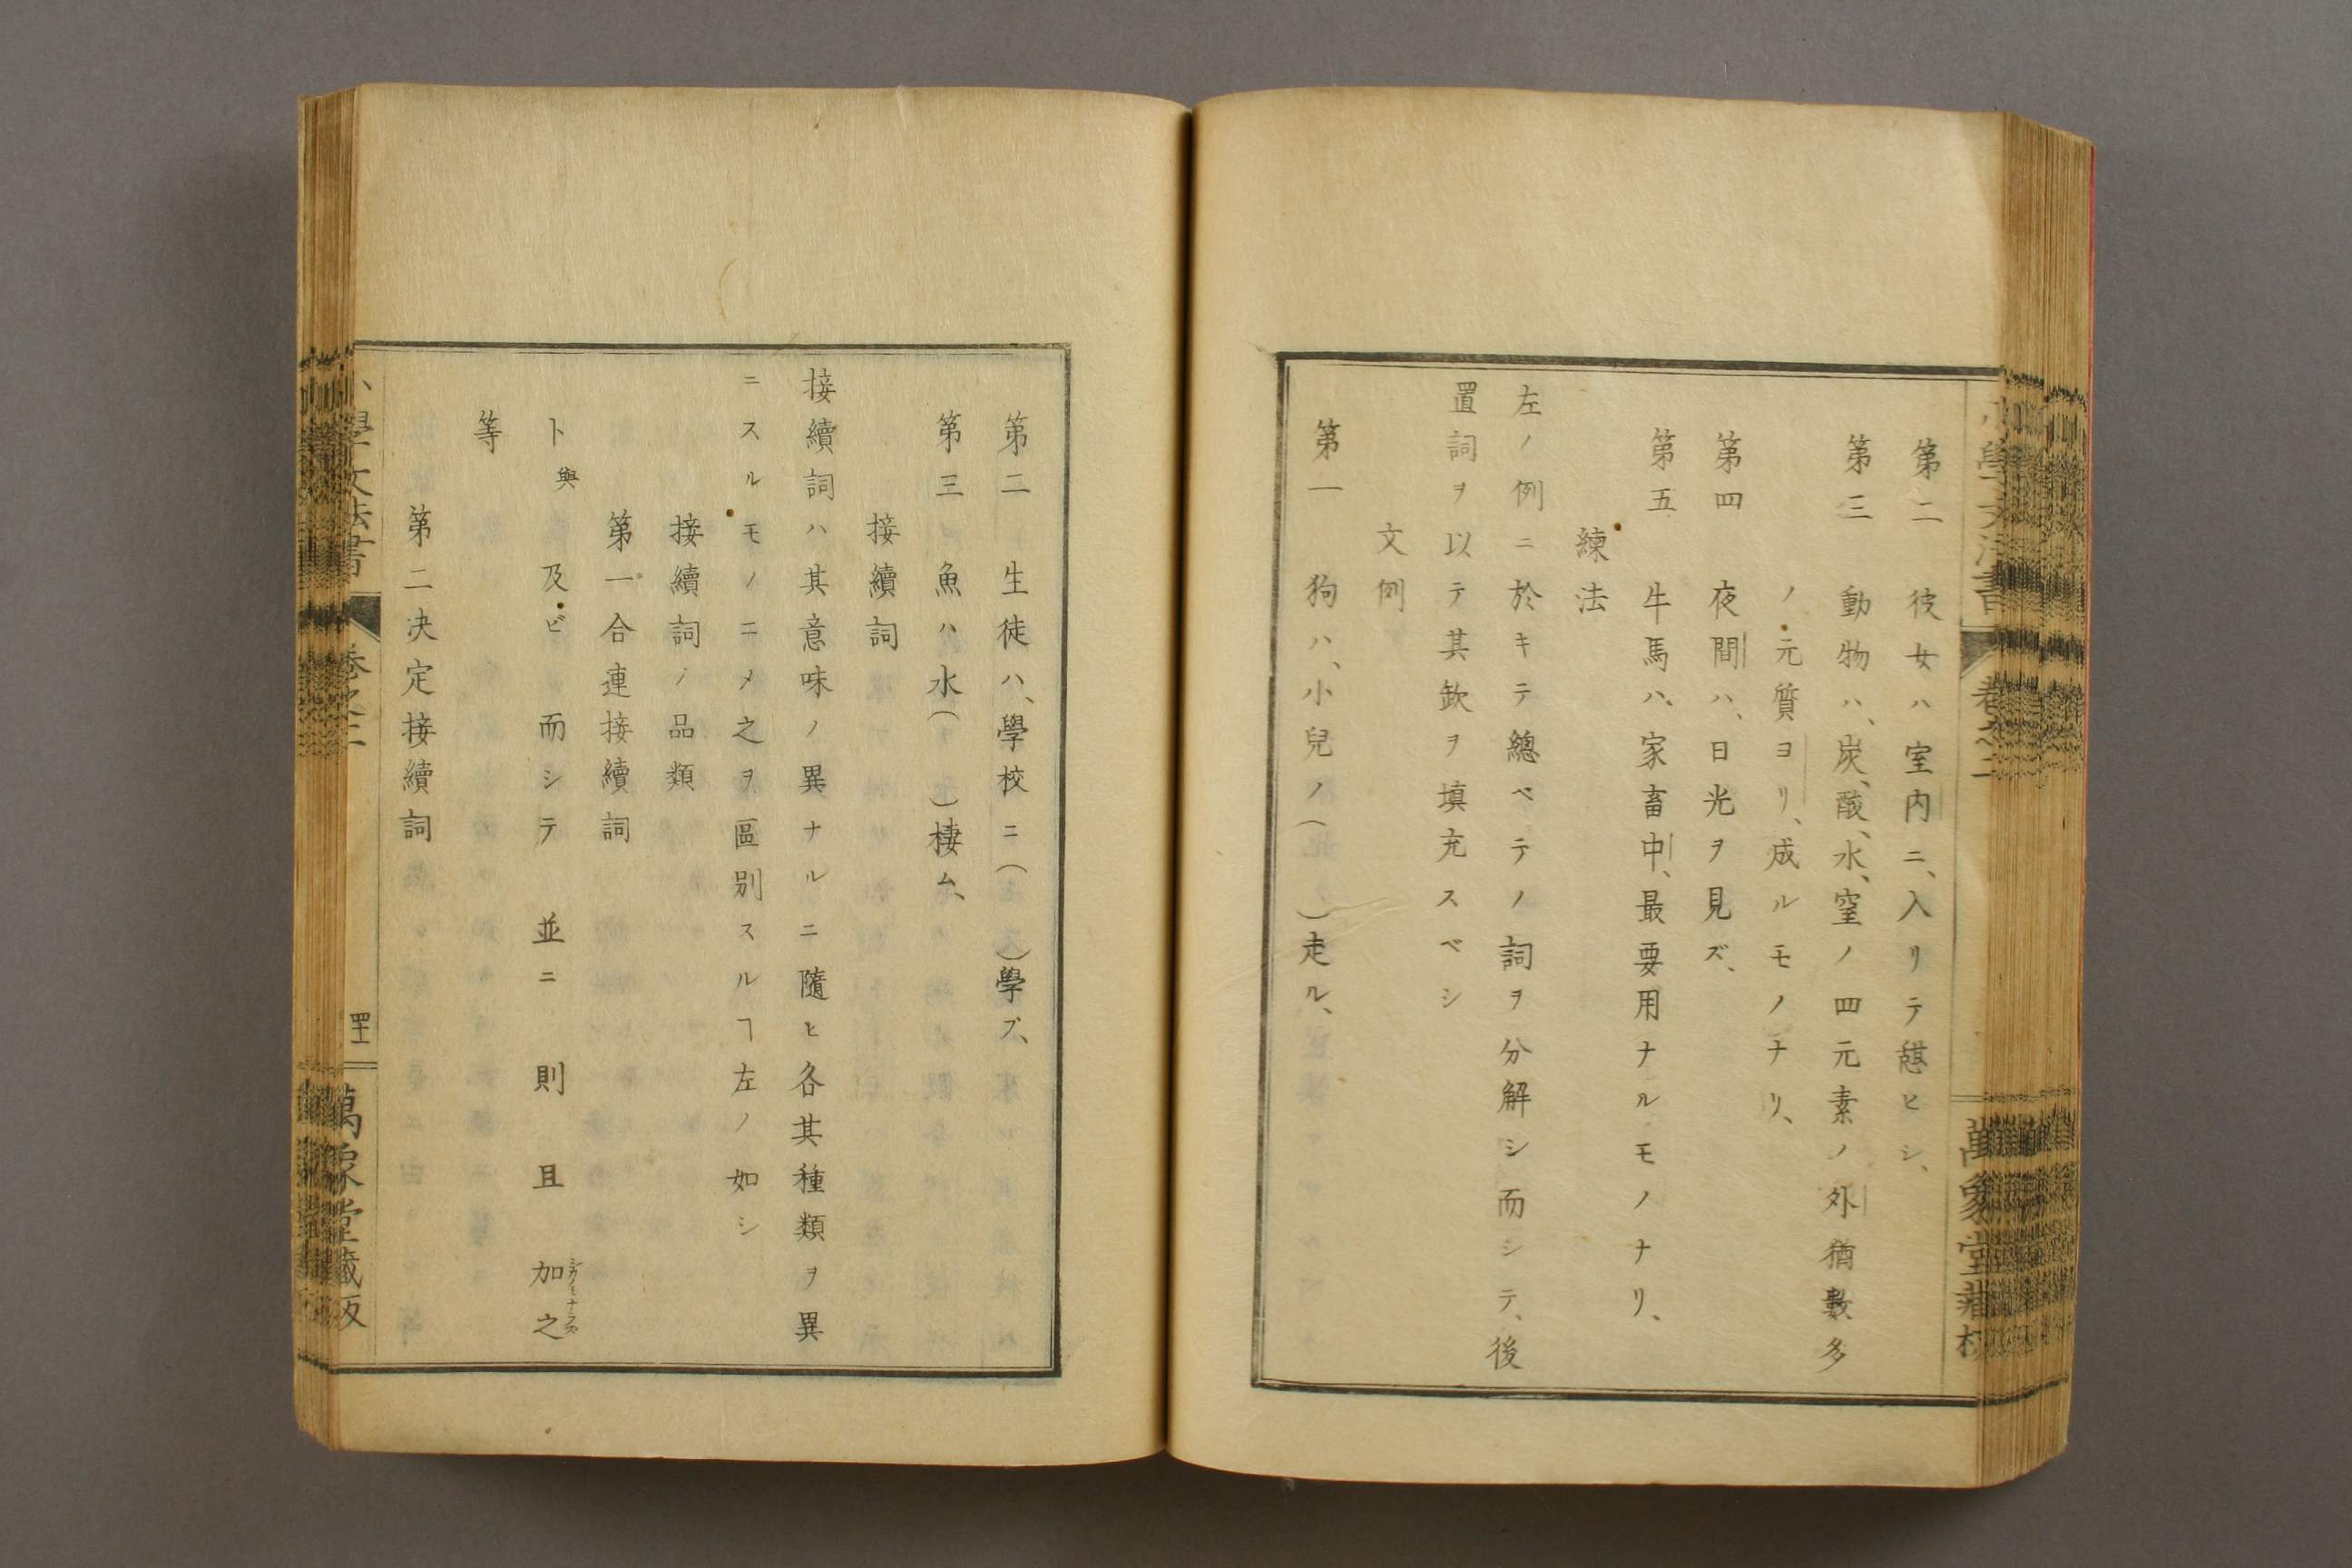 小學文法書 卷之二
萬象堂藏板
第二 彼女ハ室内ニ、入リテ憩ヒシ、
第三 動物ハ、炭、酸、水、窒ノ四元素ノ外猶數多
ノ元質ヨリ、成ルモノナリ、
第四 夜間ハ、日光ヲ見ズ、
第五 牛馬ハ、家畜中、最要用ナルモノナリ、
練法
左ノ例ニ於キテ總ベテノ詞ヲ分解シ而シテ、後
置詞ヲ以テ其欽ヲ填充スベシ
文例
第一 狗ハ、小兒ノ( )走ル、
第二 生徒ハ、學校ニ( )學ブ、
第三 魚ハ水( )棲ム、
接續詞
接續詞ハ其意味ノ異ナルニ隨ヒ各其種類ヲ異
ニスルモノニメ之ヲ區別スルヿ左ノ如シ
接續詞ノ品類
第一合連接續詞
ト與 及ビ 而シテ 並ニ 則 且 加之シカノミナラズ
等
第二決定接續詞
小學文法書 卷之二 四十一
萬象堂藏板